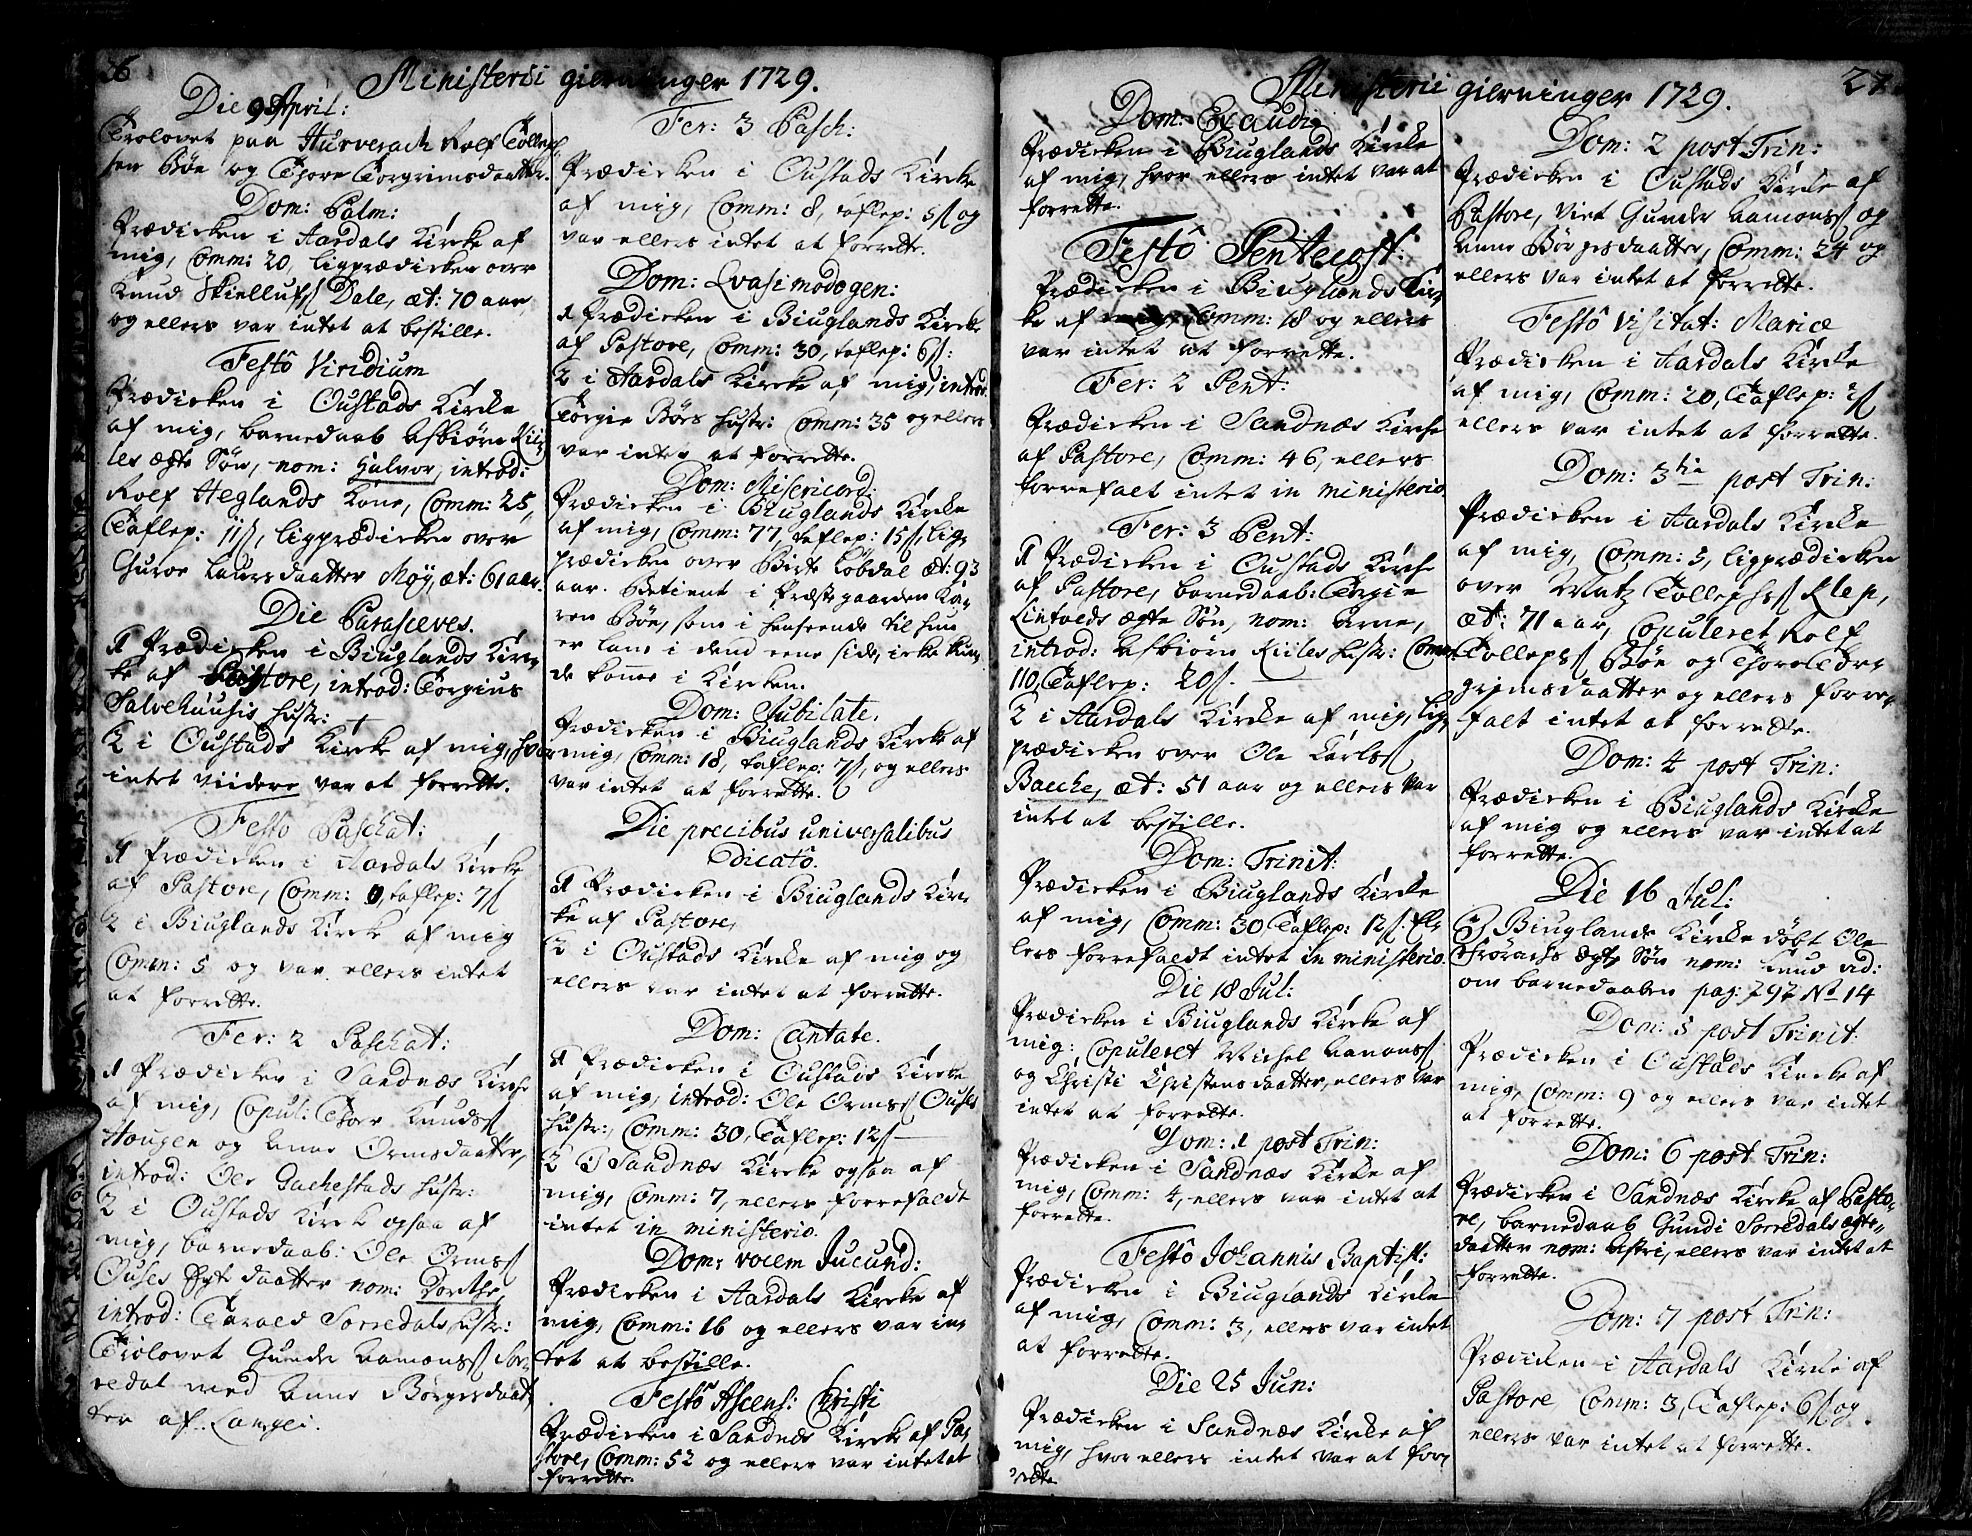 26
Ministerii gierninger 1729.
Die 9 April:
Trolovet paa Hurverach Rolf Tolleph-
sen Bøe og Thore Torgrimsdaatter.
Dom: Palm:
Prædicken i Aardals Kirke af
mig, Comm: 20, ligprædicken over
Knud Skiellufs Dale, æt: 70 aar,
og ellers var intet at bestille.
Festô Viridium
Prædicken i Oustads Kirke
af mig, barnedaab Asbiørn Kii-
les ægte Søn, nom: Halvor, introd:
Rolf Heglands Kone, Comm: 25,
Taflep: 11ß, ligprædicken over
Guroe Laursdaatter Moÿ, æt: 61 aar.
Die Parasceves.
1 Prædicken i Biuglands Kir-
ke af Pastore, introd: Torgius
Salvehuusis hustr:
2 i Oustads Kirke af mig, hvor
intet viidere var at forrette.
Festo Paschat:
1 Prædicken i Aardals Kirke
af Pastore, Comm: 0, taflep: 7ß
2 i Biuglands Kirke af mig
Comm: 5 og var ellers intet
at forrette.
Fer: 2 Paschat:
1 Prædicken i Sandnæs Kirche
af mig, Copul: Thor Knuds
Hougen og Anne Ormsdaatter,
introd: Ole hustr:
2 i Oustads Kirke ogsaa af
mig, barnedaab: Ole Orms
Ouses Egte daatter nom: Dorthe,
introd: Tarald Sorredals hustr:
Trolovet Gunder Aamons Sor-
redal med Anne Børgersdaat-
ter af Langei.
Fer: 3 Pasch:
Prædicken i Oustads Kirke
af mig, Comm: 8, taflep: 5ß og
var ellers intet at forrette.
Dom: Qvasimodogen:
1 Prædicken i Biuglands Kirke
af Pastore, Comm: 30, taflep: 6ß:
2 i Aardals Kirke af mig, introd:
Torgie Børs hustr: Comm: 35 og ellers
var intet at forrette.
Dom: Misericord:
Prædicken i Biuglands Kirke
af mig, Comm: 77, taflep: 15ß, lig-
prædicken over Birte Lobdal æt: 93
aar. Betient i Præstegaarden Ka-
ren Bøe, som i henseende til hun
er lam i dend eene side, icke kun-
de komme i Kircken.
Dom: Jubilate.
Prædicken i Biuglands Kirke af
mig, Comm: 18, taflep: 7ß, og ellers
var intet at forrette.
Die precibus universalibus
Dicatô.
1 Prædicken i Biuglands Kir-
ke af Pastore,
2 i Oustads Kirke af mig og
ellers var intet at forrette.
Dom: Cantate.
1 Prædicken i Oustads Kirke
af mig, introd: Ole Orms Ouses
hustr:, Comm: 30, Taflep: 12ß
2 i Sandnæs Kirke ogsaa af
mig, Comm: 7, ellers forrefaldt
intet in ministerio.
Dom: vocem Jucund:
Prædicken i Aardals Kirke af
mig, Comm: 16 og ellers var in-
tet at bestille.
Festô Ascens: Christi
Prædicken i Sandnæs Kirke af Pa-
store, Comm: 52 og ellers var intet at
forrette.
Ministerii gierninger 1729.
27
Dom: Exaudi
Prædicken i Biuglands Kirke
af mig, hvor ellers intet var at
forrette.
Festô Pentecost:
Prædicken i Biuglands Kir-
ke af mig, Comm: 18 og ellers
var intet at forrette.
Fer: 2 Pent:
Prædicken i Sandnæs Kirche
af Pastore, Comm: 46, ellers
forrefalt intet in ministerio.
Fer: 3 Pent:
1 Prædicken i Oustads Kirche
af Pastore, barnedaab: Torgie
Lintveds ægte Søn, nom: Arne,
introd: Asbiørn Kiiles hustr: Comm:
110, Taflep: 20ß.
2 i Aardals Kirke af mig, lig-
prædicken over Ole Carls
Bacche, æt: 51 aar og ellers var
intet at bestille.
Dom: Trinit:
Prædicken i Biuglands Kirke
af mig, Comm: 30, Taflep: 12ß. El-
lers forrefaldt intet in ministerio.
Die 18 Jul:
Prædicken i Biuglands Kirke af
mig: Copuleret Michel Aamons
og Christi Christensdaatter, ellers var
intet at forrette.
Dom: 1 post Trin:
Prædicken i Sandnæs Kirke af
mig, Comm: 4, ellers var intet at
forrette.
Festô Johannis Baptist:
Prædicken i Biuglands Kirke
af mig, Comm: 3, ellers var intet
at forrette.
Die 25 Jun:
Prædicken i Sandnæs Kirke af
mig, hvor ellers intet var at for-
rette
Dom: 2 post Trin:
Prædicken i Oustads Kirke af
Pastore, Viet Gunder Aamons og
Anne Børgesdaatter, Comm: 24 og
ellers var intet at forrette.
Festô Visitat: Mariæ
Prædicken i Aardals Kirke
af mig, Comm: 20, Taflep: ß
ellers var intet at forrette.
Dom: 3tia post Trin:
Prædicken i Aardals Kirke
af mig, Comm: 5, ligprædicken
over Matz Tollephs Klep,
æt: 71 aar, Copuleret Rolf
Tolleps Bøe og Thore Tor-
grimsdaatter og ellers forre-
falt intet at forrette.
Dom: 4 post Trin:
Prædicken i Biuglands Kirke
af mig og ellers var intet at
forrette.
Die 16 Jul:
I Biuglands Kirke døbt Ole
Frørachs ægte Søn nom: Knud vid:
om barnedaaben pag: 292 No 14
Dom: 5 post Trinit:
Prædicken i Oustads Kirke af
mig, Comm: 9 og ellers var intet
at forrette.
Dom: 6 post Trin:
Prædicken i Sandnæs Kirke af Pasto-
re, barnedaab Gundi Sorredals ægte-
daatter nom: Astri, ellers var intet at
forrette.
Dom: 7 post Trin:
Prædicken i Aardals Kirke af
Pastore, Comm: 3, Taflep: 6ß og
ellers var intet at forrette.